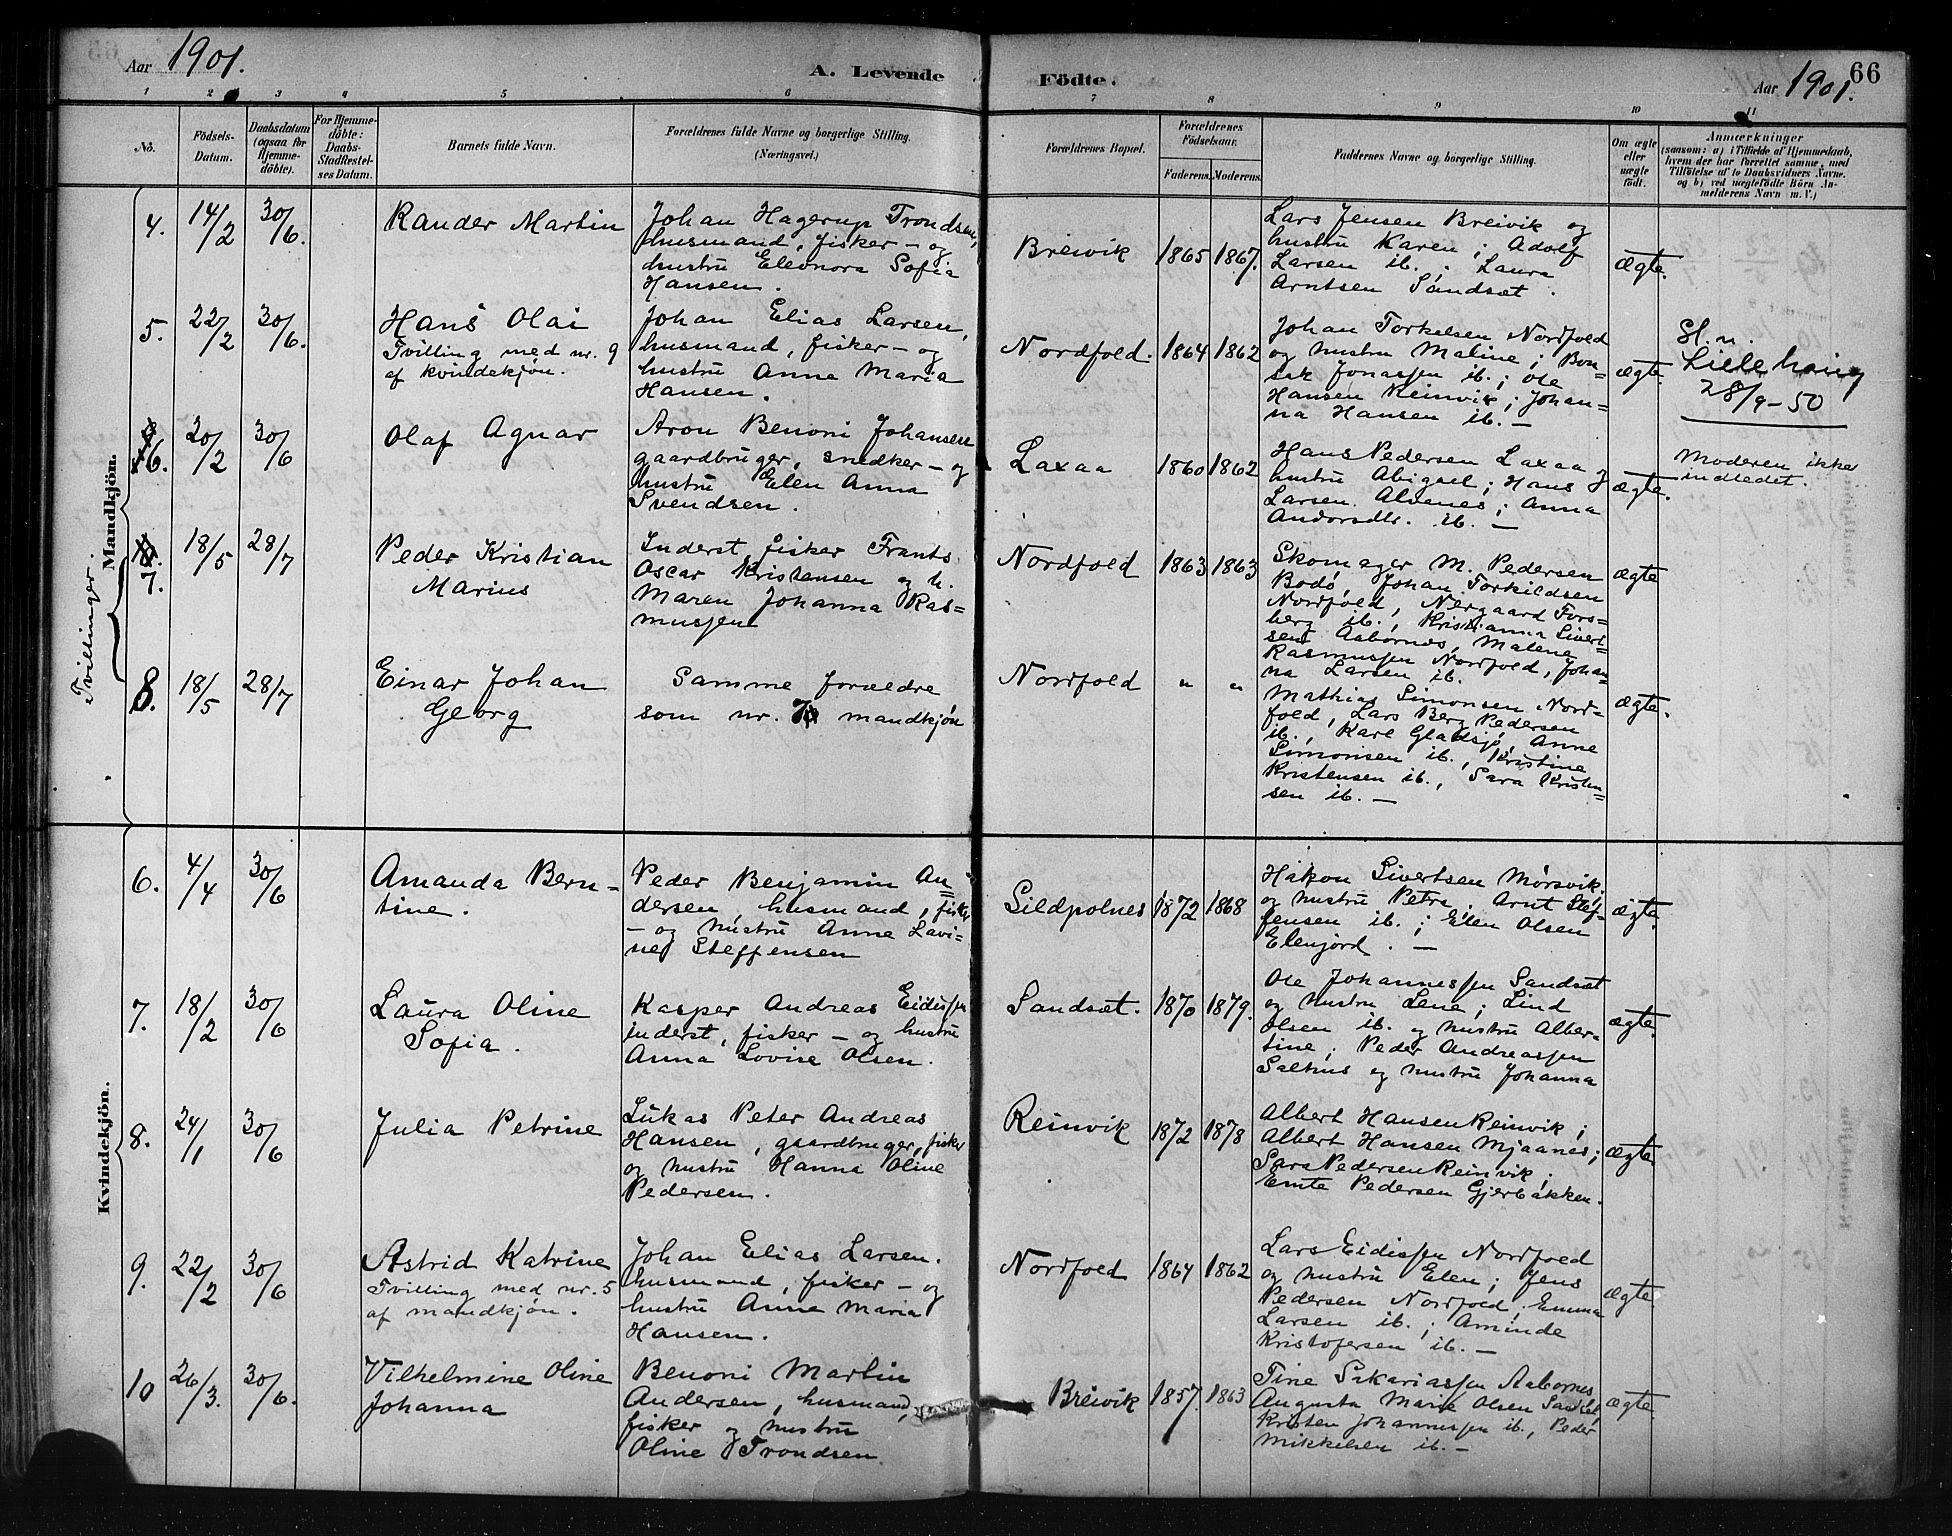 Aar 1901.
A. Levende
Födte.
Aar 1901.
66
1 2 3 4 5 6 7 8 9 10 11
No.
Födsels-
Datum.
Daabsdatum
(ogsaa for
Hjemme-
döbte).
For Hjemme-
döbte:
Daabs-
Stadfestel-
ses Datum.
Barnets fulde Navn.
Forældrenes fulde Navne og borgerlige Stilling.
(Næringsvei.)
Forældrenes Bopæl.
Forældrenes
Födselsaar.
Faderens. Moderens.
Faddernes Navne og borgerlige Stilling.
Om ægte
eller
uægte
födt.
Anmærkninger
(saasom: a) i Tilfælde af Hjemmedaab,
hvem der har forrettet samme, med
Tilföielse af to Daabsvidners Navne.
og b) ved uægtefödte Börn An-
melderens Navn m. V.)
Mandkjön.
Tvillinger.
4. 14/2 30/6.
Rander Martin
Johan Hagerup Trondsen,
husmand, fisker – og
hustru Eleonora Sofia
Hansen.
Breivik 1865 1867.
Lars Jensen Breivik og
hustru Karen; Adolf
Larsen ib.; Laura
Arntsen Sandsæt.
ægte.
5. 22/2 30/6.
Hans Olai
Tvilling med nr. 9
af kvindekjøn.
Johan Elias Larsen,
husmand, fisker – og
hustru Anne Maria
Hansen.
Nordfold. 1864 1862
Johan Torkelsen Nordfold
og hustru Maline; Bon-
sak Jonassen ib.; Ole
Hansen Reinvik; Johan-
na Hansen ib. –
ægte.
28/9 – 50
6. 20/2 30/6
Olaf Agnar
Aron Benoni Johansen
gaardbruger, snedker – og
hustru Elen Anna
Svendsen.
Laxaa 1860 1862
Hans Pedersen Laxaa og
hustru Abigael; Hans
Larsen Alvenes; Anna
Andorsdtr. ib. –
ægte.
Moderen ikke
indledet.
7. 18/5 28/7
Peder Kristian
Marius
Inderst, fisker Frants
Oscar Kristensen og h.
Maren Johanna Ras-
mussen
Nordfold 1863 1863
Skomager M. Pedersen
Bodø, Johan Torkildsen
Nordfold, Nergaard Fors-
berg ib., Kristianna Sivert-
sen Aabornes, Malene
Rasmussen Nordfold, Johan-
na Larsen ib.
ægte
8. 18/5 28/7
Einar Johan
Georg
Samme forældre
som nr. 7 mandkjøn
Nordfold " "
Mathias Simonsen Nord-
fold, Lars Berg Pedersen
ib., Karl Gladsjø, Anne
Simonsen ib., Kristine
Kristensen ib., Sara Kristen-
sen ib. –
ægte.
Kvindekjön.
6. 4/4 30/6
Amanda Bern-
tine.
Peder Benjamin An-
dersen, husmand, fisker
– og hustru Anne Lavi-
ne Steffensen
Sildpolnes 1872 1868
Håkon Sivertsen Mørsvik.
og hustru Petra. Arnt Stef-
fensen ib.; Elen Olsen
Elenjord. –
ægte.
7. 18/2 30/6
Laura Oline
Sofia.
Kasper Andreas Eidissen
inderst, fisker – og hustru
Anna Lovise Olsen.
Sandsæt. 1870 1879.
Ole Johannessen Sandsæt
og hustru Lene; Lind
Olsen ib. og hustru Alber-
tine; Peder Andreassen
Salthus og hustru Johanna
ægte.
8. 24/1 30/6
Julia Petrine
Lukas Peter Andreas
Hansen, gaardbruger, fisker
og hustru Hanna Oline
Pedersen.
Reinvik 1872 1878
Albert Hansen Reinvik;
Albert Hansen Mjaanes;
Sara Pedersen Reinvik;
Pedersen Gjerbakken.
ægte.
9. 22/2 30/6
Astrid Katrine
Tvilling med nr. 5
af mandkjøn.
Johan Elias Larsen.
husmand, fisker – og
hustru Anne Maria
Hansen.
Nordfold 1864 1862
Lars Eidissen Nordfold
og hustru Elen; Jens
Pedersen Nordfold; Emma
Larsen ib.; Aminde
Kristofersen ib. –
ægte
10 26/3. 30/6.
Vilhelmine Oline
Johanna
Benoni Martin
Andersen, husmand,
fisker og hustru
Oline Trondsen
Breivik 1857. 1863
Tine Sakariassen Aabornes
Augusta Marie Olsen
Kristen Johannessen ib., Peder
Mikkelsen ib. –
ægte.